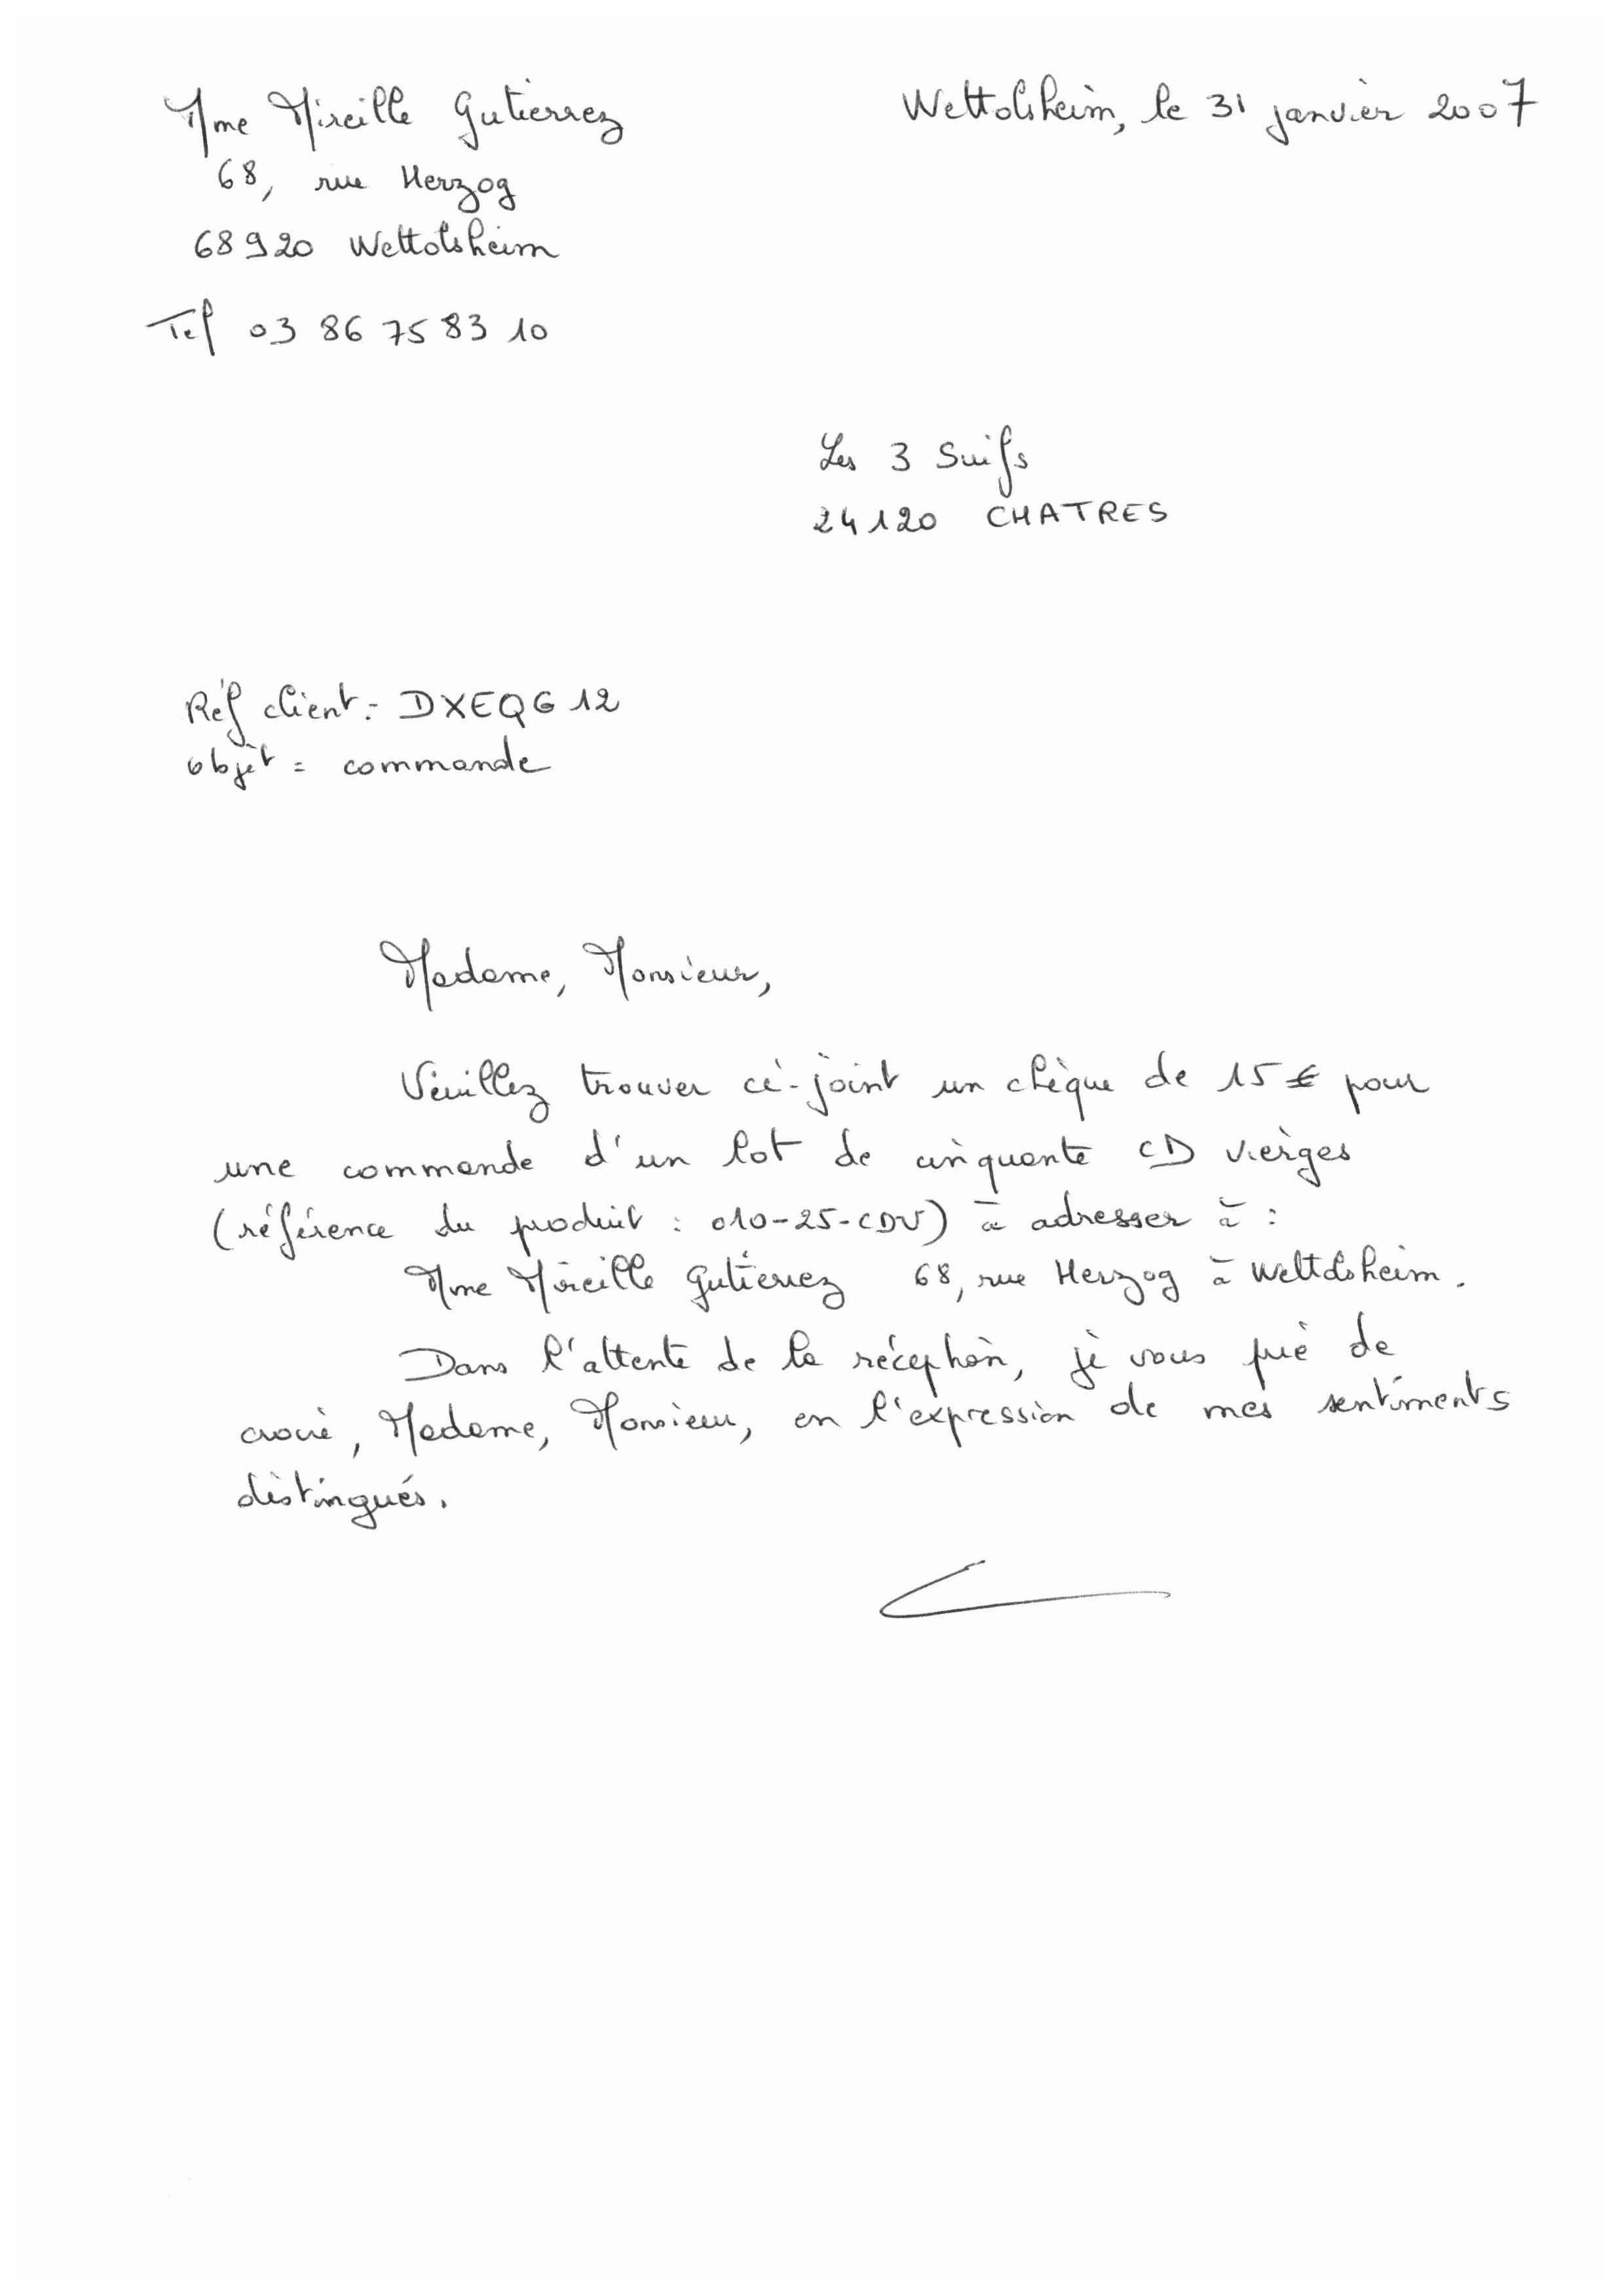 Mme Mireille Gutierrez
Wettolsheim, le 31 janvier 2007
68, rue Herzog
68920 Wettolsheim
Tel 03 86 75 83 10
Les 3 Suifs
24120 CHATRES
Réf client : DXEQG12
objet : commande
Madame, Monsieur,
Veuillez trouver ci-joint un chèque de 15 € pour
une commande d'un lot de cinquante CD vierges
(référence du produit : 010-25-CDV) à adresser à :
Mme Mireille Gutierrez 68, rue Herzog à Wettolsheim.
Dans l'attente de la réception, je vous prie de
croire, Madame, Monsieur, en l'expression de mes sentiments
distingués.